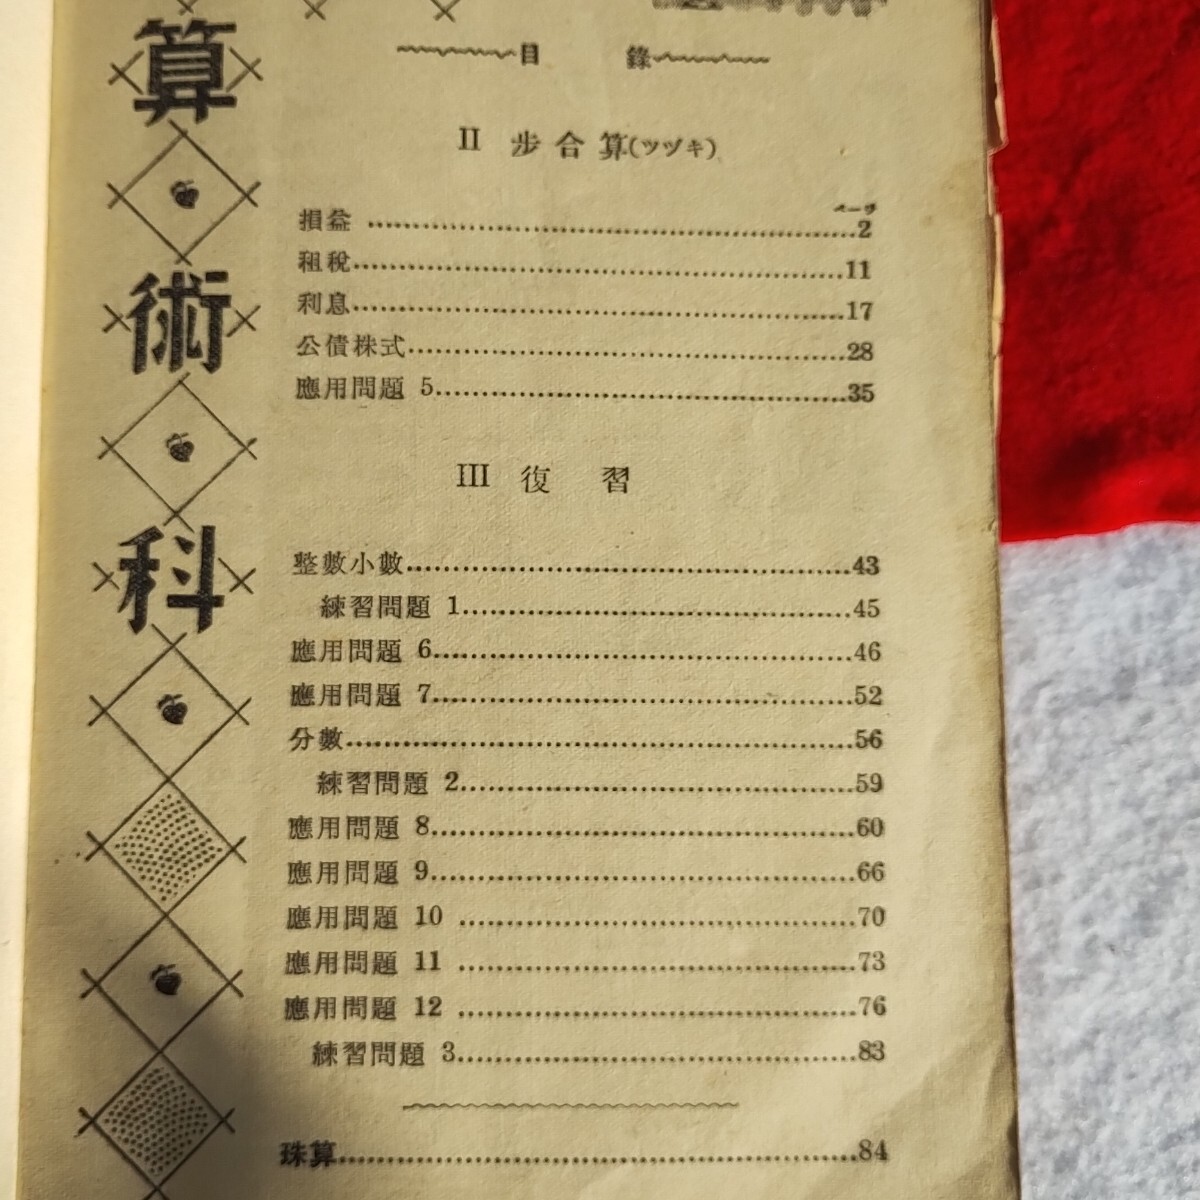 算術科
目錄
II 步合算(ツヅキ)
ページ
損益 2
租稅 11
利息 17
公債株式 28
應用問題 5 35
III 復習
整數小數 43
練習問題 1 45
應用問題 6 46
應用問題 7 52
分數 56
練習問題 2 59
應用問題 8 60
應用問題 9 66
應用問題 10 70
應用問題 11 73
應用問題 12 76
練習問題 3 83
珠算 84